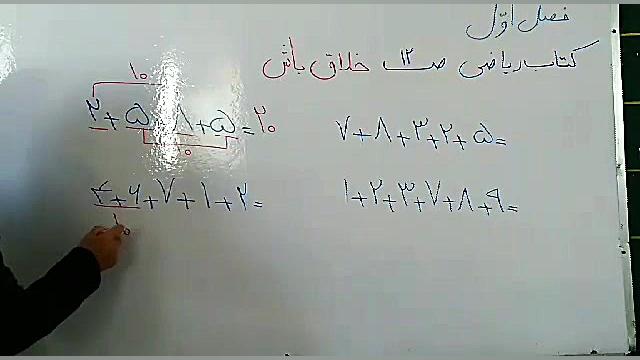 فصل اوّل
کتاب ریاضی صـ ۱۲ خلاق باش
۱۰
۲+۵+۸+۵=۲۰
۱۰
۷+۸+۳+۲+۵=
۴+۶+۷+۱+۲=
۱۰
۱+۲+۳+۷+۸+۹=